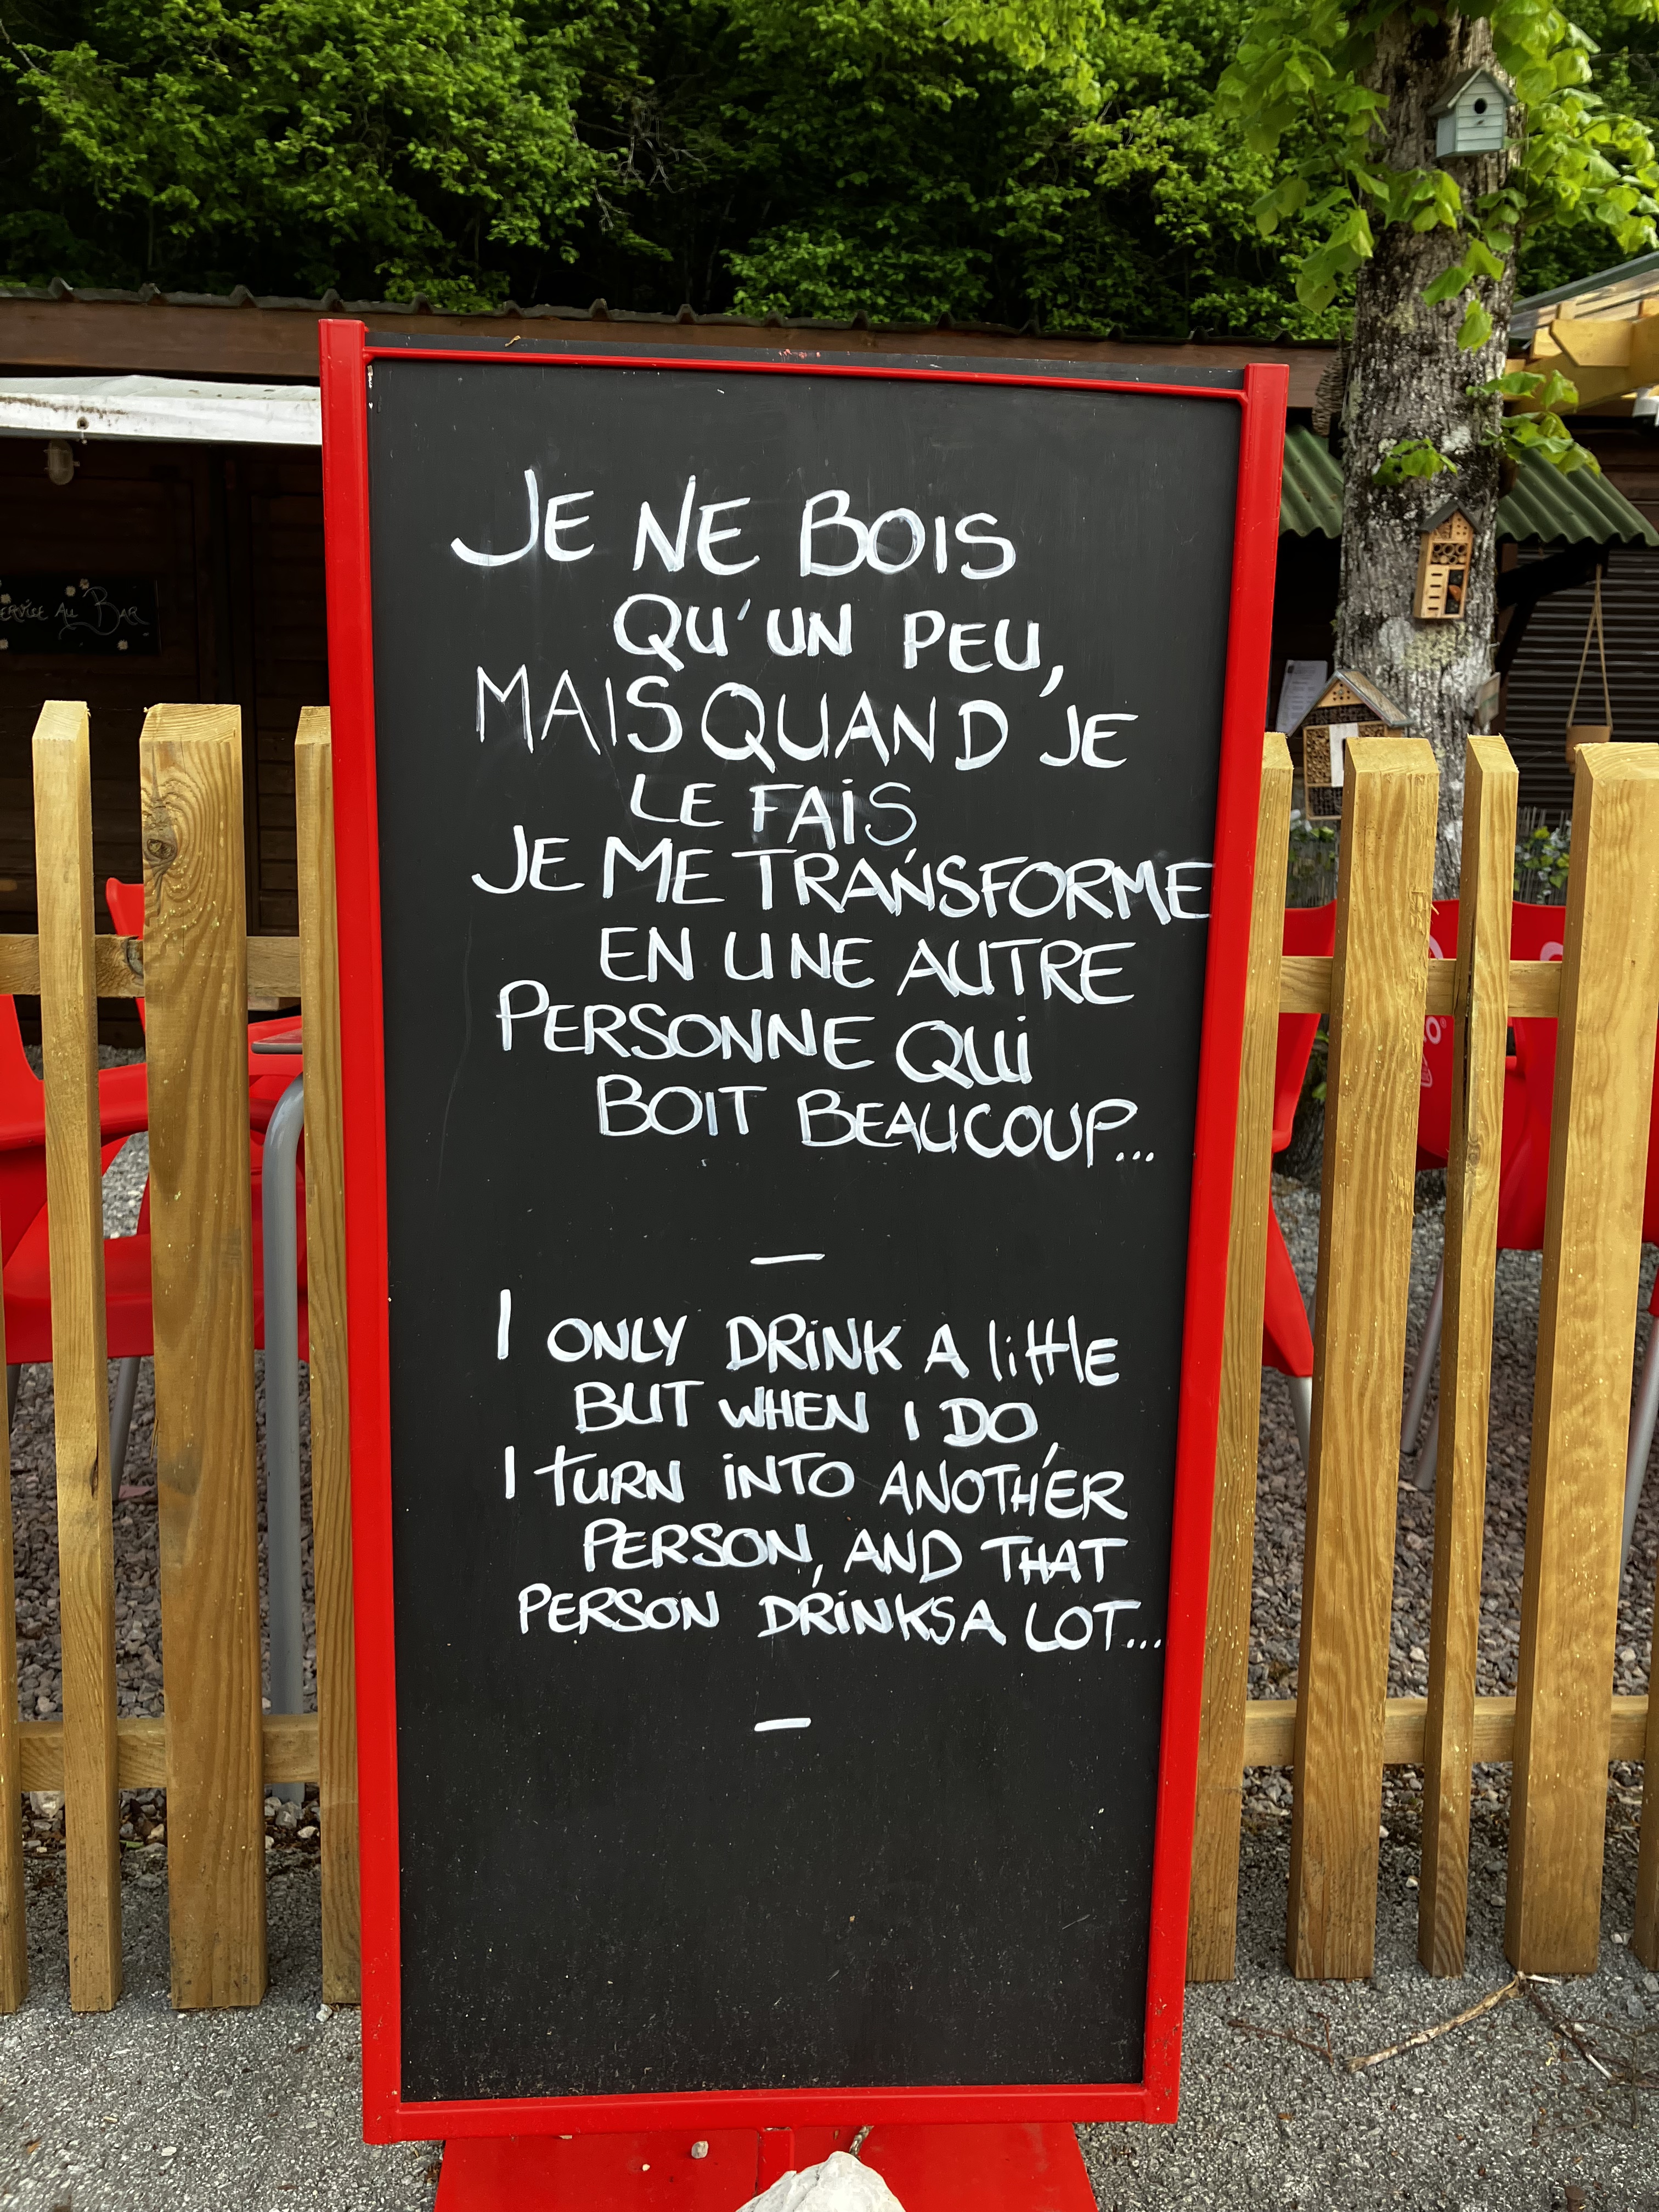 JE NE BOIS
QU'UN PEU,
MAIS QUAND JE
LE FAIS,
JE ME TRANSFORME
EN UNE AUTRE
PERSONNE QUI
BOIT BEAUCOUP...
—
I ONLY DRINK A little
BUT WHEN I DO,
I tURN INTO ANOTHER
PERSON, AND THAT
PERSON DRINKS A LOT...
—
AU BAR